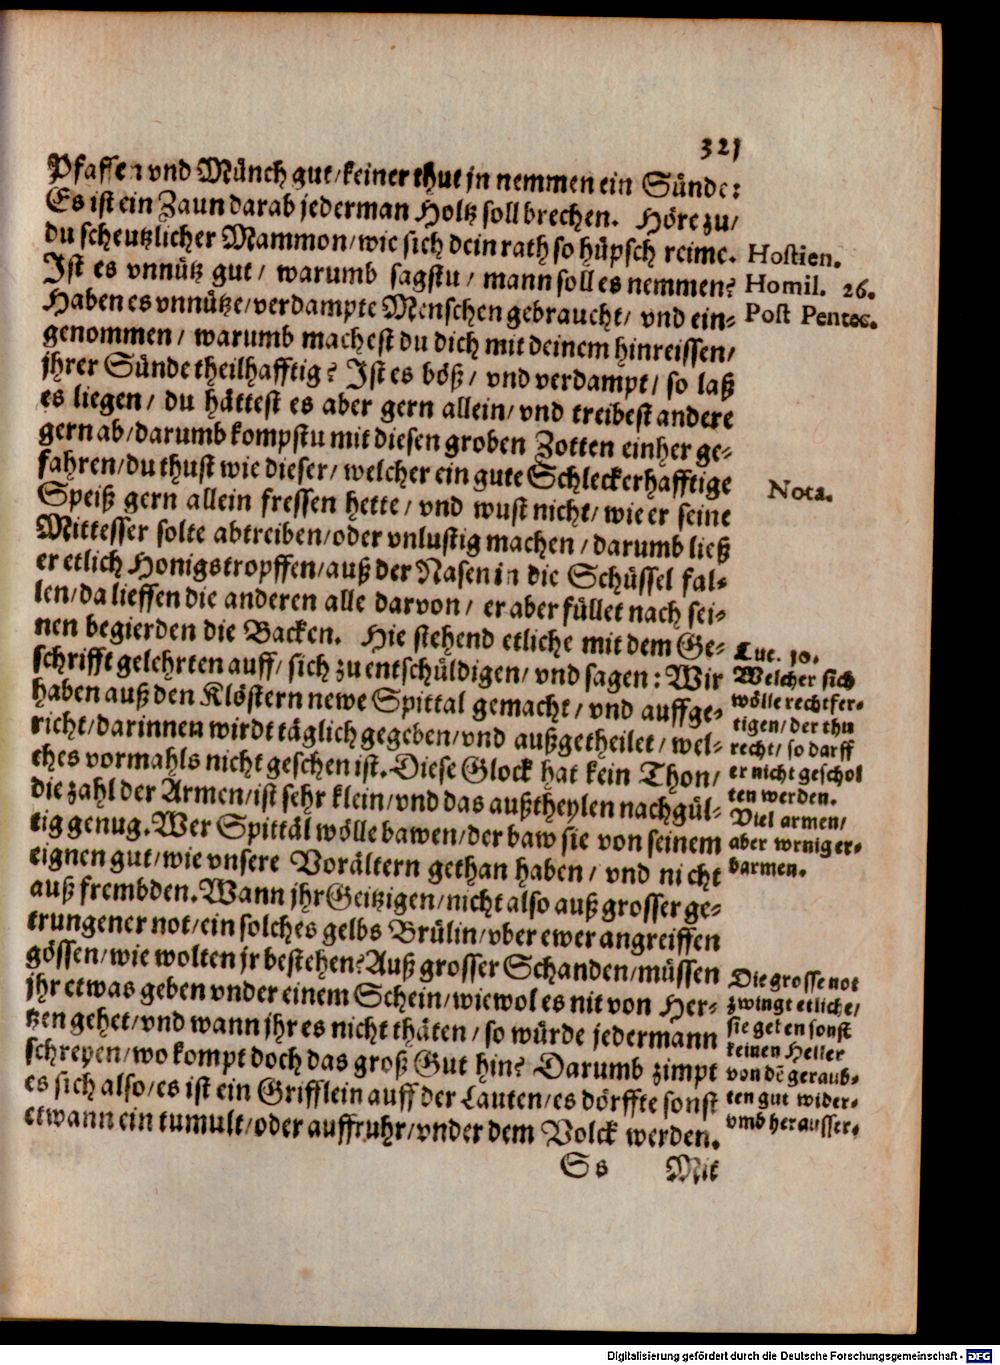 321
Pfaffen vnd Münch gut/keiner thut jn nemmen ein Sünde:
Es ist ein Zaun darab jederman Holtz soll brechen. Höre zu/
du scheutzlicher Mammon/wie sich dein rath so hüpsch reime.
Ist es vnnütz gut/ warumb sagstu/ mann soll es nemmen?
Haben es vnnütze/verdampte Menschen gebraucht/ vnd ein-
genommen/ warumb machest du dich mit deinem hinreissen/
jhrer Sünde theilhafftig? Ist es böß/ vnd verdampt/ so laß
es liegen/ du hättest es aber gern allein/ vnd treibest andere
gern ab/darumb kompstu mit diesen groben Zotten einher ge-
fahren/du thust wie dieser/ welcher ein gute Schleckerhafftige
Speiß gern allein fressen hette/ vnd wust nicht/ wie er seine
Mittesser solte abtreiben/oder vnlustig machen/darumb ließ
er etlich Honigstropffen/auß der Nasen in die Schüssel fal-
len/da lieffen die anderen alle darvon/ er aber füllet nach sei-
nen begierden die Backen. Hie stehend etliche mit dem Ge-
schrifft gelehrten auff/ sich zu entschüldigen/ vnd sagen: Wir
haben auß den Klöstern newe Spittal gemacht/ vnd auffge-
richt/darinnen wirdt täglich gegeben/vnd außgetheilet/ wel-
ches vormahls nicht geschen ist. Diese Glock hat kein Thon/
die zahl der Armen/ist sehr klein/vnd das außtheylen nachgül-
tig genug. Wer Spittäl wölle bawen/der baw sie von seinem
eignen gut/wie vnsere Vorältern gethan haben/ vnd nicht
auß frembden. Wann jhr Geitzigen/nicht also auß grosser ge-
trungener not/ein solches gelbs Brülin/vber ewer angreiffen
gössen/wie wolten jr bestehen? Auß grosser Schanden/müssen
jhr etwas geben vnder einem Schein/wiewol es nit von Her-
tzen gehet/vnd wann jhr es nicht thäten/so würde jedermann
schreyen/wo kompt doch das groß Gut hin? Darumb zimpt
es sich also/es ist ein Grifflein auff der Lauten/es dörffte sonst
etwann ein tumult/oder auffruhr/vnder dem Volck werden.
Ss Mit
Hostien.
Homil. 26.
Post Pentec.
Nota.
Luc. 10.
Welcher sich
wölle rechtfer-
tigen/der thu
recht/so darff
er nicht geschol
ten werden.
Viel armen/
aber wenig er-
barmen.
Die grosse not
zwingt etliche/
sie geben sonst
keinen Heller
von dē geraub-
ten gut wider-
vmb herausser.
Digitalisierung gefördert durch die Deutsche Forschungsgemeinschaft - DFG